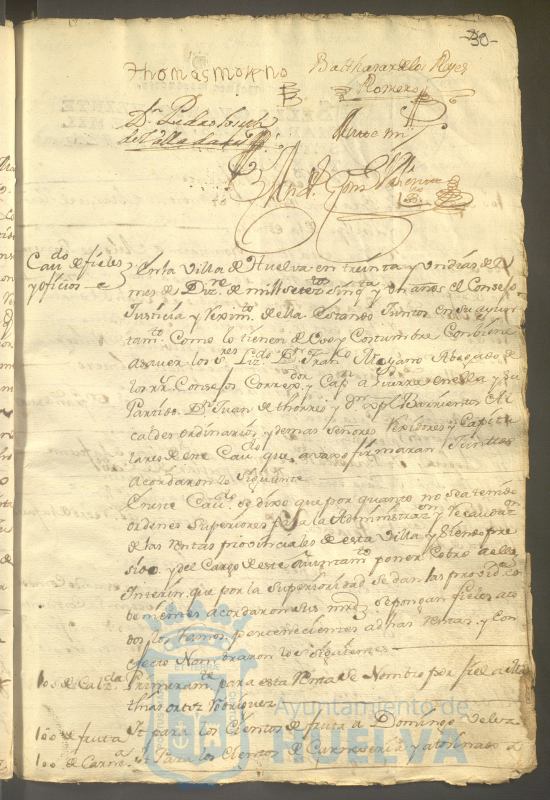 30
Thomas Moreno Balthasar de los Reyes
Romero
Dn Pedro Joseph
de Valladares
Ante mi
Cavdo de fieles
y oficios
En la Villa de Huelva en treinta y un dias del
mes de Dizre de mill setezs sinqta y un años el Consejo
Justicia y Reximto de ella estando Juntos en su ayun
tamto Como lo tienen de Uso y Costumbre Combiene
a saver los Sres Lizdo Dn Franco Abogado de
los Rs Consejos Correxor y Capn a Guerra en ella y su
Partido Dn Juan de thorres y Dn Barrientos Al
caldes ordinarios, y demas Señores Rexidores y Capitu
lares de este Cavdo que avajo firmaran Junttos
Acordaron lo Siguiente
En este Cavdo se dixo que por quanto no se a tenido
ordenes Superiores para la Administrazon y Recaudazon
de las Rentas provinciales de esta Villa y siendo pre
siso y del Cargo de este Ayuntamto poner Cobro a ellas
Interin que por la Superioridad se dan las providas
Acordaron sus mrds se pongan fieles a to
dos los Ramos pertenecientes a dhas Rentas, y con
efecto Nombraron los Siguientes
Primeramte para esta Renta se Nombro por fiel a
Rodriguez
100 de fruta
It para los Cientos de fruta a Domingo
100 de Carne
It Para los Cientos de Carneseria y a
Ayuntamiento de
HUELVA